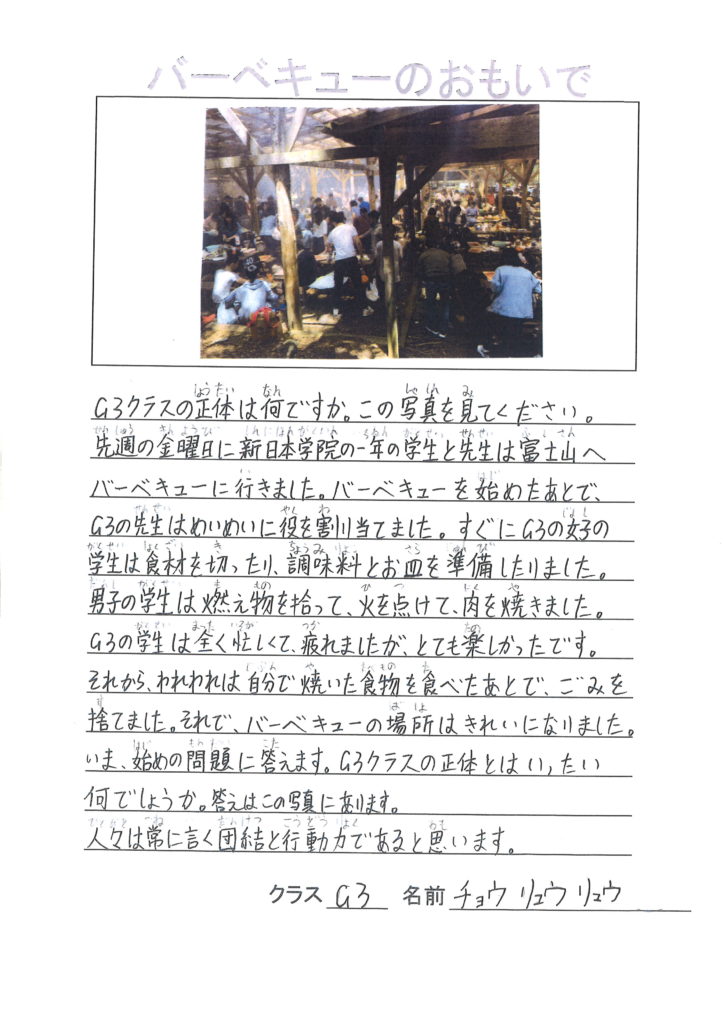 バーベキューのおもいで
G3クラスの正体は何ですか。この写真を見てください。
先週の金曜日に新日本学院の一年の学生と先生は富士山へ
バーベキューに行きました。バーベキューを始めたあとで、
G3の先生はめいめいに役を割り当てました。すぐにG3の女子の
学生は食材を切ったり、調味料とお皿を準備したりしました。
男子の学生は燃え物を拾って、火を点けて、肉を焼きました。
G3の学生は全く忙しくて、疲れましたが、とても楽しかったです。
それから、われわれは自分で焼いた食物を食べたあとで、ごみを
捨てました。それで、バーベキューの場所はきれいになりました。
いま、始めの問題に答えます。G3クラスの正体とはいったい
何でしょうか。答えはこの写真にあります。
人々は常に言く団結と行動力であると思います。
クラス G3 名前 チョウ リュウ リュウ